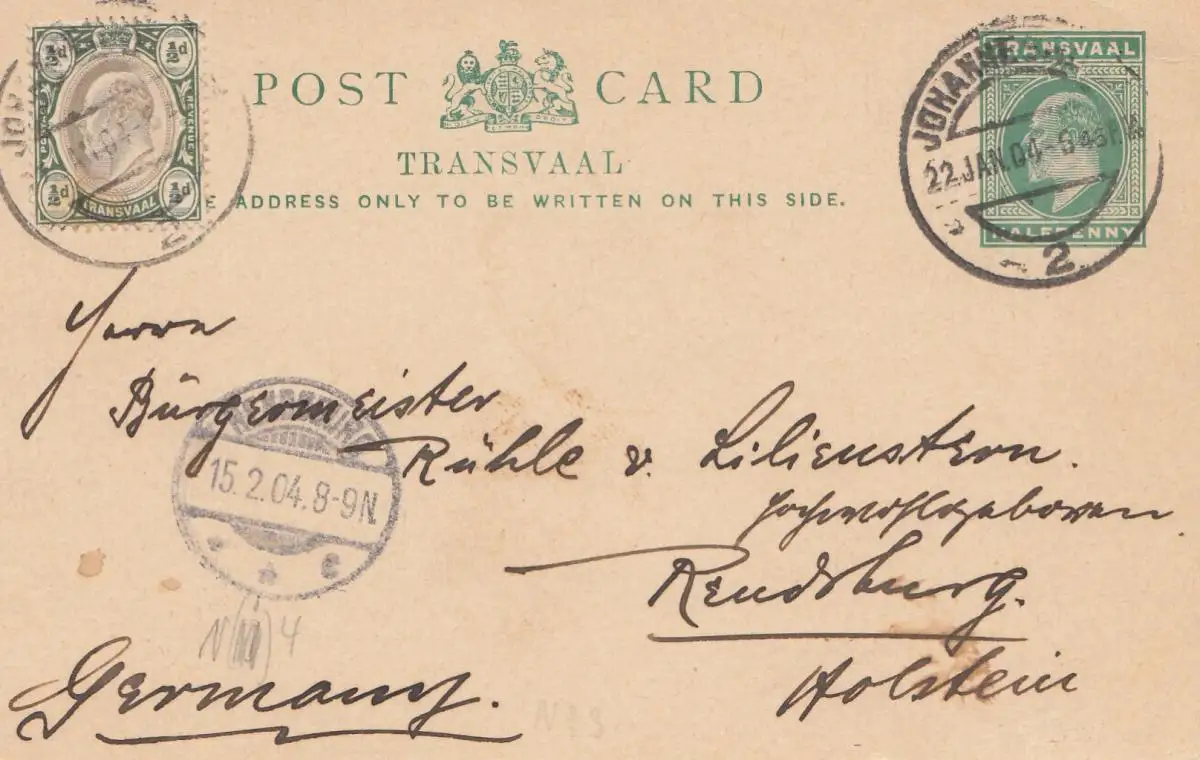 ½d ½d
POSTAGE REVENUE
½d ½d
TRANSVAAL
POST CARD
TRANSVAAL
ADDRESS ONLY TO BE WRITTEN ON THIS SIDE.
TRANSVAAL
HALFPENNY
22 JAN. 04
2
2
Herrn
Bürgermeister
Rühle v. Lilienstern.
Hochwohlgeboren
Rendsburg.
Holstein
15.2.04.8-9N.
N 4
Germany.